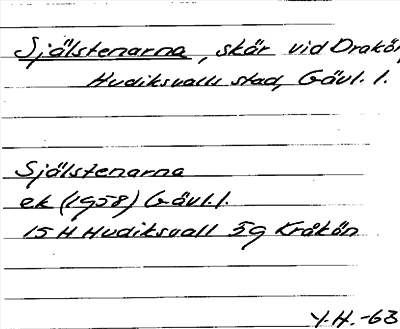 Själstenarna, skär vid Drakön,
Hudiksvalls stad, Gävl. l.
Själstenarna
ek (1958) Gävl. l.
15 H Hudiksvall 5g Kråkön
Y.H. -63